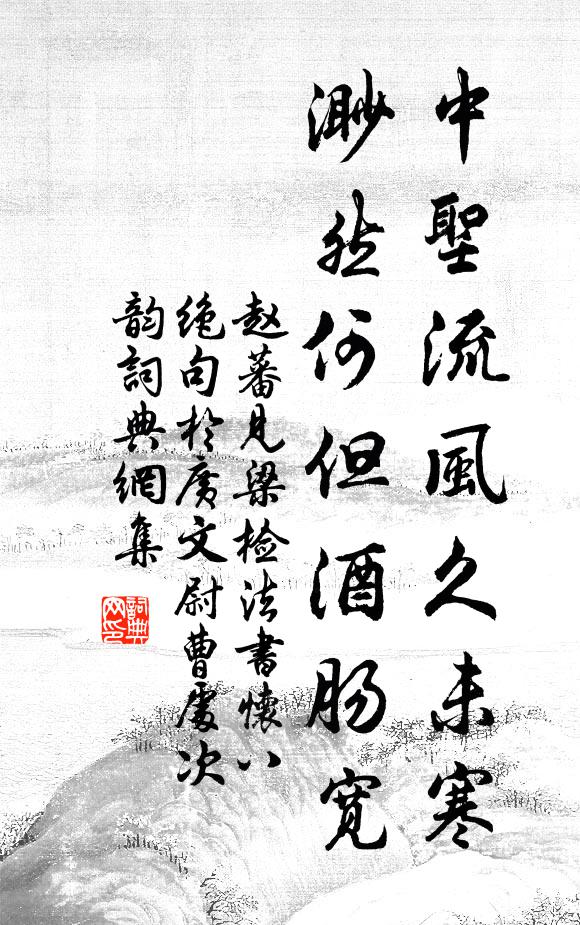 中聖流風久未寒
渺然何但酒肠寬
赵蕃見梁检法書懷八
绝句於廣文尉曹處次
韵詞典網集
詞典